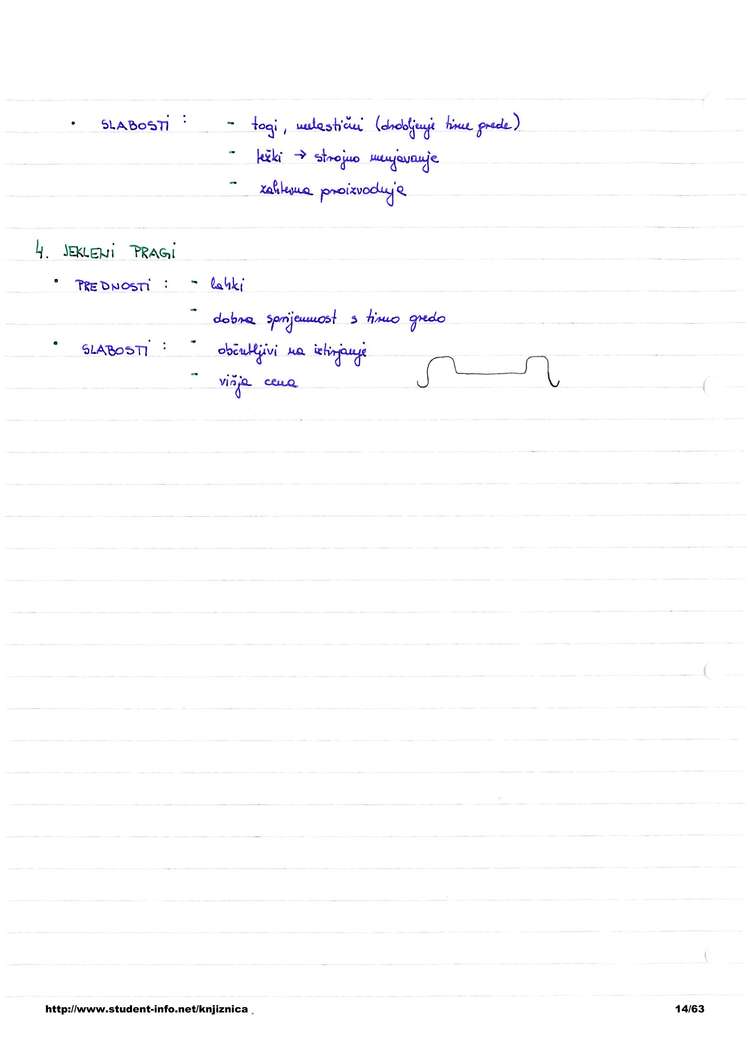 • SLABOSTI : - togi, nelastični (drobljenje tirne grede)
- težki → strojno menjavanje
- zahtevna proizvodnja
4. JEKLENI PRAGI
• PREDNOSTI : - lahki
- dobra sprijemnost s tirno gredo
• SLABOSTI : - občutljivi na istirjanje
- višja cena
http://www.student-info.net/knjiznica
14/63